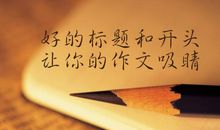 好的标题和开头
让你的作文吸睛